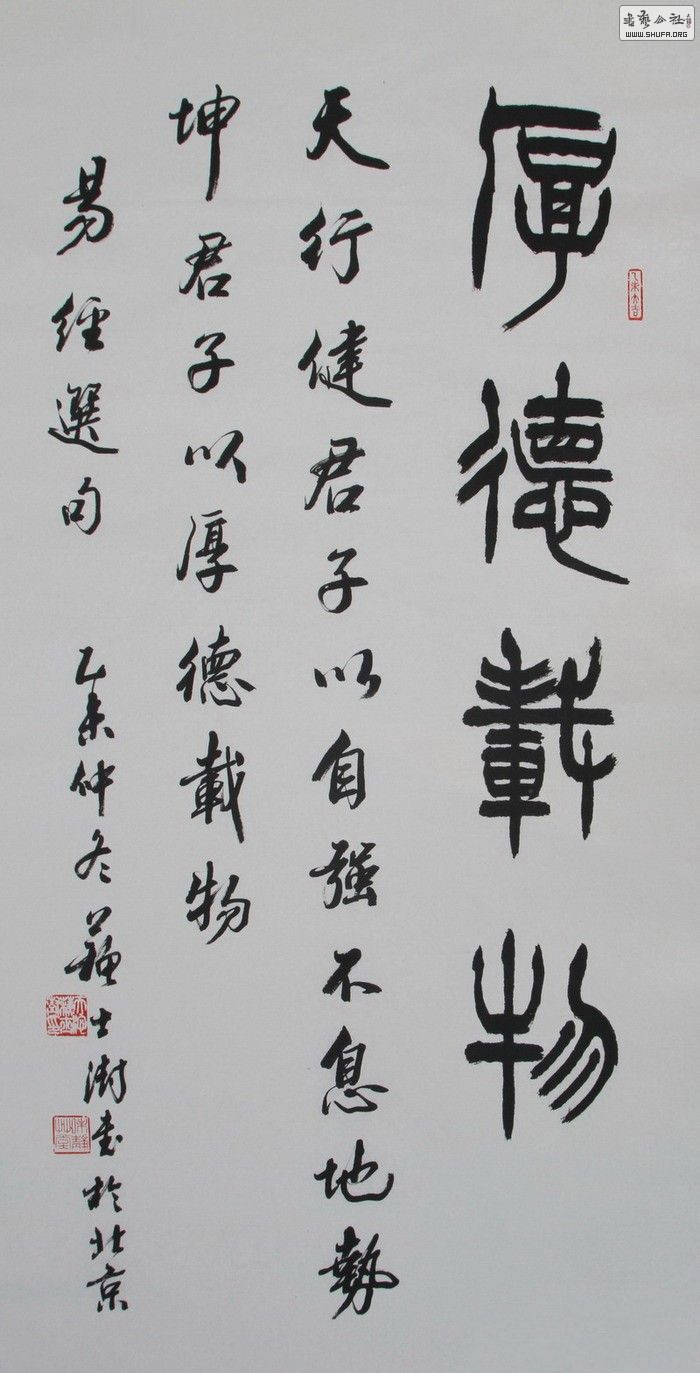 厚德載物
天行健君子以自強不息地勢
坤君子以厚德載物
易經選句
乙未仲冬蘇士澍書於北京
乙未大吉
書法公社
WWW.SHUFA.ORG